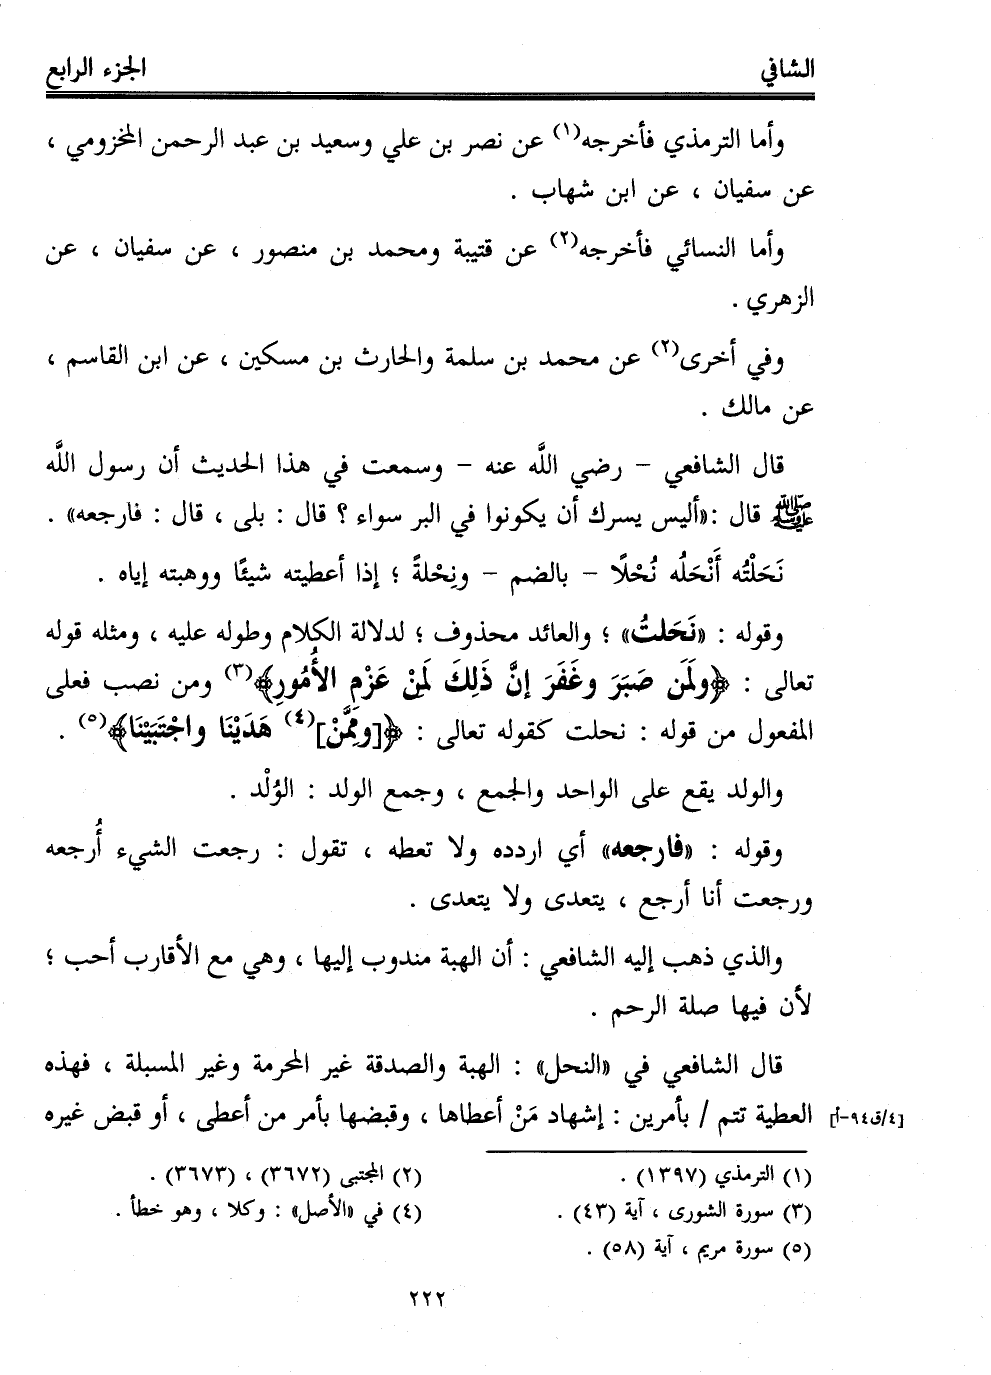 الشافي
الجزء الرابع
وأما الترمذي فأخرجه(١) عن نصر بن علي وسعيد بن عبد الرحمن المخزومي ،
عن سفيان ، عن ابن شهاب .
وأما النسائي فأخرجه(٢) عن قتيبة ومحمد بن منصور ، عن سفيان ، عن
الزهري .
وفي أخرى(٢) عن محمد بن سلمة والحارث بن مسكين ، عن ابن القاسم ،
عن مالك .
قال الشافعي - رضي اللَّه عنه - وسمعت في هذا الحديث أن رسول اللَّه
ﷺ قال :«أليس يسرك أن يكونوا في البر سواء ؟ قال : بلى ، قال : فارجعه» .
نَحَلْتُه أَنْحَلُه نُحْلًا - بالضم - ونِحْلةً ؛ إذا أعطيته شيئًا ووهبته إياه .
وقوله : «نَحَلتُ» ؛ والعائد محذوف ؛ لدلالة الكلام وطوله عليه ، ومثله قوله
تعالى : ﴿ولَمَن صَبَرَ وغَفَرَ إنَّ ذَلِكَ لَمِنْ عَزْمِ الأُمُورِ﴾(٣) ومن نصب فعلى
المفعول من قوله : نحلت كقوله تعالى : ﴿[ومِمَّنْ](٤) هَدَيْنَا واجْتَبَيْنَا﴾(٥) .
والولد يقع على الواحد والجمع ، وجمع الولد : الوُلْد .
وقوله : «فارجعه» أي اردده ولا تعطه ، تقول : رجعت الشيء أُرجعه
ورجعت أنا أرجع ، يتعدى ولا يتعدى .
والذي ذهب إليه الشافعي : أن الهبة مندوب إليها ، وهي مع الأقارب أحب ؛
لأن فيها صلة الرحم .
قال الشافعي في «النحل» : الهبة والصدقة غير المحرمة وغير المسبلة ، فهذه
العطية تتم / بأمرين : إشهاد مَنْ أعطاها ، وقبضها بأمر من أعطى ، أو قبض غيره
[٤/ق٩٤-أ]
(١) الترمذي (١٣٩٧) .
(٢) المجتبى (٣٦٧٢) ، (٣٦٧٣) .
(٣) سورة الشورى ، آية (٤٣) .
(٤) في «الأصل» : وكلا ، وهو خطأ .
(٥) سورة مريم ، آية (٥٨) .
٢٢٢